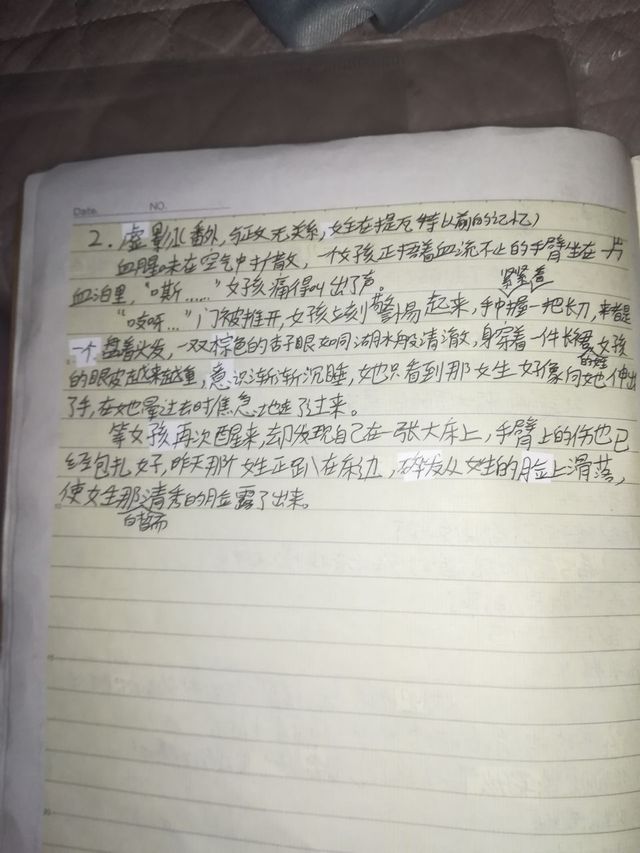 Date. NO.
2. 虚影(番外,与正文无关系,女生在提瓦特以前的记忆)
血腥味在空气中扩散,一个女孩正捂着血流不止的手臂坐在一片
血泊里,“嘶……”女孩痛得叫出了声。
“吱呀…”门被推开,女孩立刻警惕起来,手中紧紧握一把长刀,来者是
一个盘着头发,一双棕色的杏子眼如同湖水般清澈,身穿着一件长裙的女生,女孩
的眼皮越来越重,意识渐渐沉睡,她只看到那女生好像向她伸出
了手,在她晕过去时焦急地走了过来。
等女孩再次醒来,却发现自己在一张大床上,手臂上的伤也已
经包扎好,昨天那个女生正趴在床边,碎发从女生的脸上滑落,
使女生那白皙而清秀的脸露了出来。